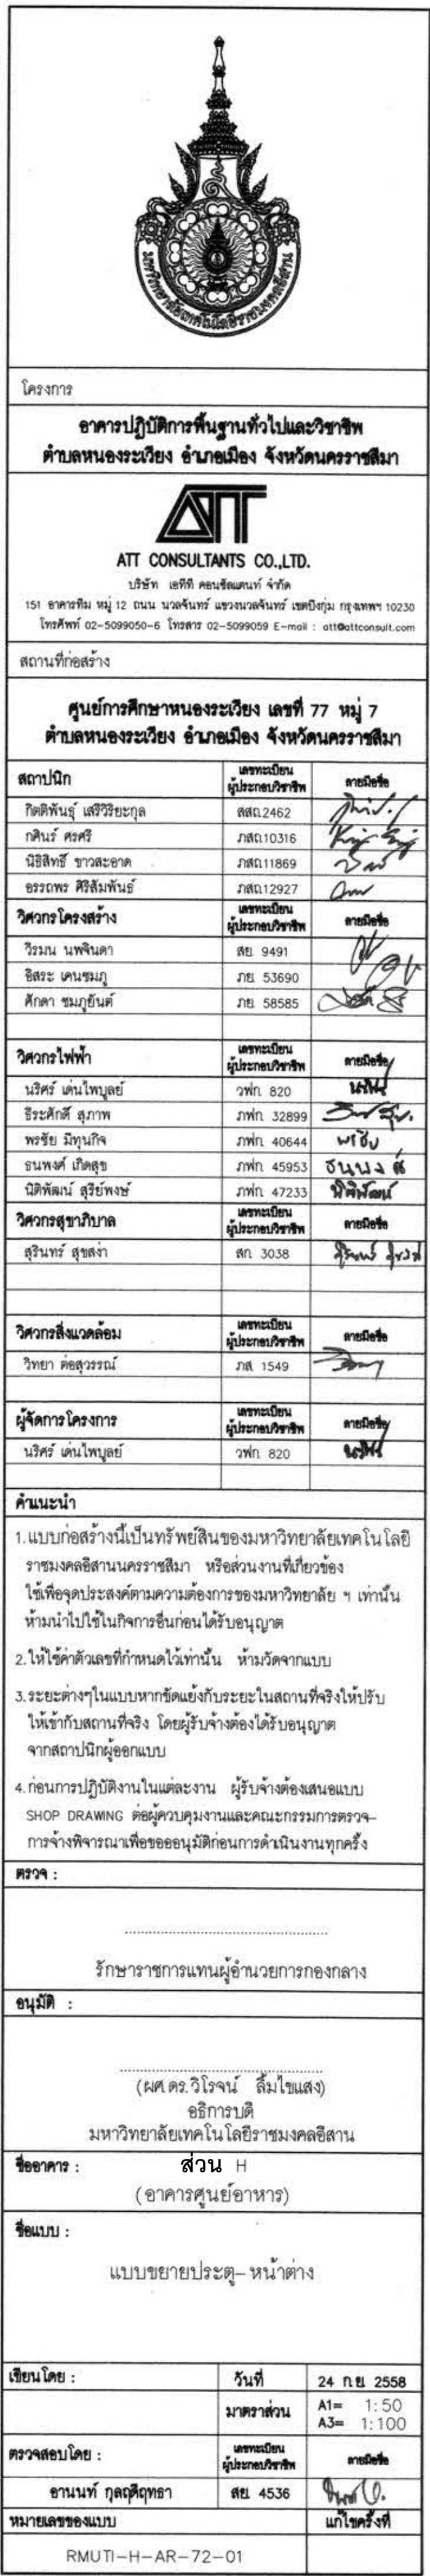 มหาวิทยาลัยเทคโนโลยีราชมงคลอีสาน
โครงการ
อาคารปฏิบัติการพื้นฐานทั่วไปและวิชาชีพ
ตำบลหนองระเวียง อำเภอเมือง จังหวัดนครราชสีมา
ATT
ATT CONSULTANTS CO.,LTD.
บริษัท เอทีที คอนซัลแตนท์ จำกัด
151 อาคารทีม หมู่ 12 ถนน นวลจันทร์ แขวงนวลจันทร์ เขตบึงกุ่ม กรุงเทพฯ 10230
โทรศัพท์ 02-5099050-6 โทรสาร 02-5099059 E-mail : att@attconsult.com
สถานที่ก่อสร้าง
ศูนย์การศึกษาหนองระเวียง เลขที่ 77 หมู่ 7
ตำบลหนองระเวียง อำเภอเมือง จังหวัดนครราชสีมา
สถาปนิก เลขทะเบียน ผู้ประกอบวิชาชีพ ลายมือชื่อ
กิตติพันธุ์ เสรีวิริยะกุล สสถ.2462
กศินร์ ศรศรี ภสถ.10316
นิธิสิทธิ์ ขาวสะอาด ภสถ.11869
อรรถพร ศิริสัมพันธ์ ภสถ.12927
วิศวกรโครงสร้าง เลขทะเบียน ผู้ประกอบวิชาชีพ ลายมือชื่อ
วีรมน นพจินดา สย. 9491
อิสระ เคนชมภู ภย. 53690
ศักดา ชมภูยันต์ ภย. 58585
วิศวกรไฟฟ้า เลขทะเบียน ผู้ประกอบวิชาชีพ ลายมือชื่อ
นริศร์ เด่นไพบูลย์ วฟก. 820
ธีระศักดิ์ สุภาพ ภฟก. 32899
พรชัย มิทุนกิจ ภฟก. 40644 พรชัย
ธนพงศ์ เกิดสุข ภฟก. 45953 ธนพงศ์
นิติพัฒน์ สุรีย์พงษ์ ภฟก. 47233 นิติพัฒน์
วิศวกรสุขาภิบาล เลขทะเบียน ผู้ประกอบวิชาชีพ ลายมือชื่อ
สุรินทร์ สุขสง่า สก. 3038
วิศวกรสิ่งแวดล้อม เลขทะเบียน ผู้ประกอบวิชาชีพ ลายมือชื่อ
วิทยา ต่อสุวรรณ์ ภส. 1549
ผู้จัดการโครงการ เลขทะเบียน ผู้ประกอบวิชาชีพ ลายมือชื่อ
นริศร์ เด่นไพบูลย์ วฟก. 820
คำแนะนำ
1. แบบก่อสร้างนี้เป็นทรัพย์สินของมหาวิทยาลัยเทคโนโลยี
ราชมงคลอีสานนครราชสีมา หรือส่วนงานที่เกี่ยวข้อง
ใช้เพื่อจุดประสงค์ตามความต้องการของมหาวิทยาลัย ฯ เท่านั้น
ห้ามนำไปใช้ในกิจการอื่นก่อนได้รับอนุญาต
2. ให้ใช้ค่าตัวเลขที่กำหนดไว้เท่านั้น ห้ามวัดจากแบบ
3. ระยะต่างๆในแบบหากขัดแย้งกับระยะในสถานที่จริงให้ปรับ
ให้เข้ากับสถานที่จริง โดยผู้รับจ้างต้องได้รับอนุญาต
จากสถาปนิกผู้ออกแบบ
4. ก่อนการปฏิบัติงานในแต่ละงาน ผู้รับจ้างต้องเสนอแบบ
SHOP DRAWING ต่อผู้ควบคุมงานและคณะกรรมการตรวจ-
การจ้างพิจารณาเพื่อขอออนุมัติก่อนการดำเนินงานทุกครั้ง
ตรวจ :
รักษาราชการแทนผู้อำนวยการกองกลาง
อนุมัติ :
(ผศ.ดร.วิโรจน์ ลิ้มไขแสง)
อธิการบดี
มหาวิทยาลัยเทคโนโลยีราชมงคลอีสาน
ชื่ออาคาร : ส่วน H
(อาคารศูนย์อาหาร)
ชื่อแบบ :
แบบขยายประตู-หน้าต่าง
เขียนโดย : วันที่ 24 ก.ย. 2558
มาตราส่วน A1= 1:50
A3= 1:100
ตรวจสอบโดย : เลขทะเบียน ผู้ประกอบวิชาชีพ ลายมือชื่อ
อานนท์ กุลฤดีฤทธา สย. 4536
หมายเลขของแบบ แก้ไขครั้งที่
RMUTI-H-AR-72-01